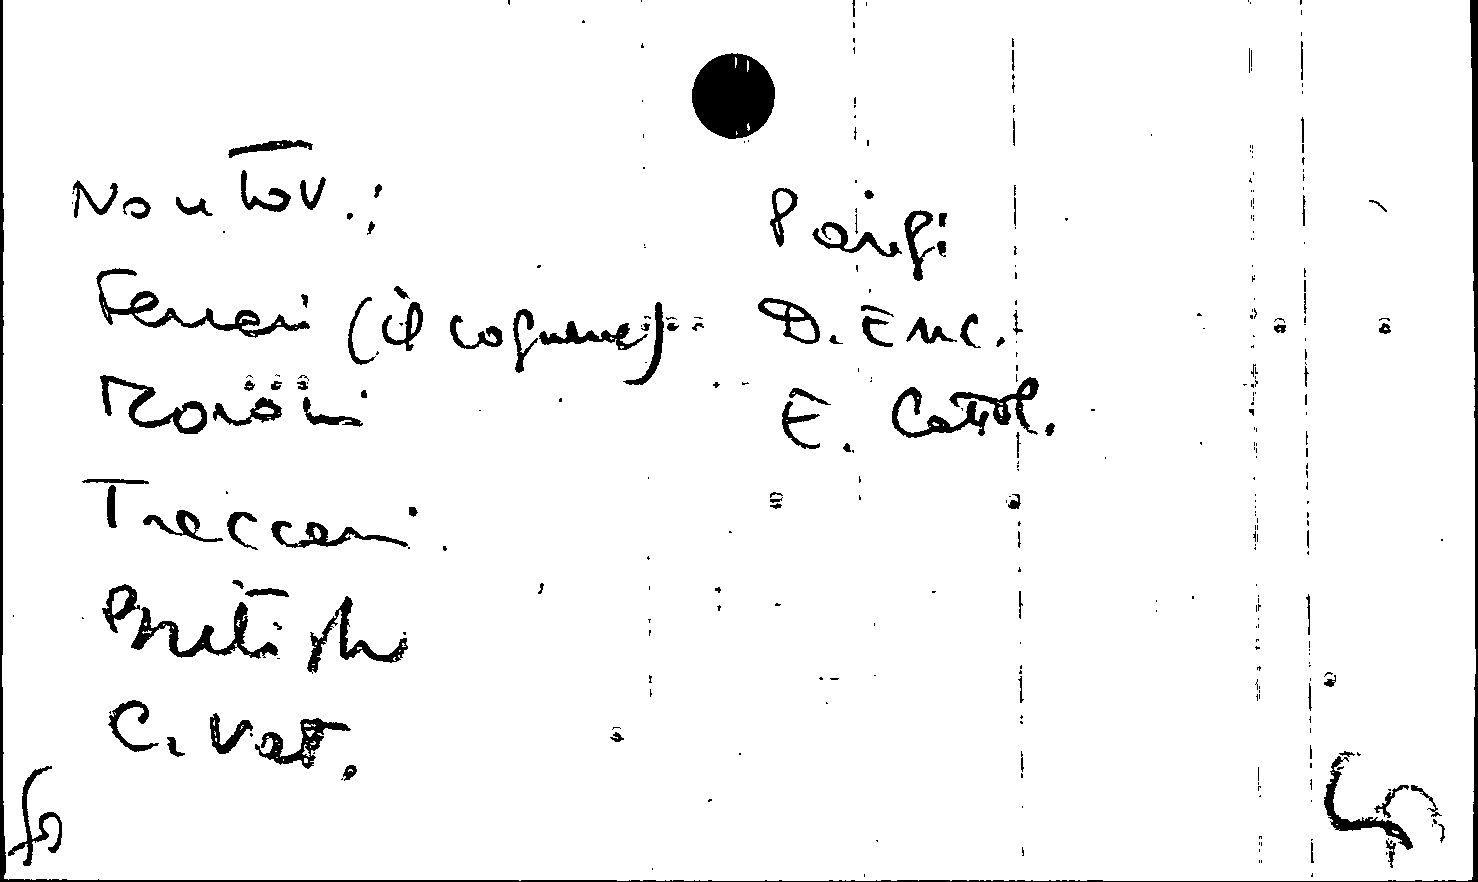 Non trov.:
Ferrari (il cognome)
Moroni
Treccani
British
C. Vat.
Parigi
D. Enc.
E. Cattol.